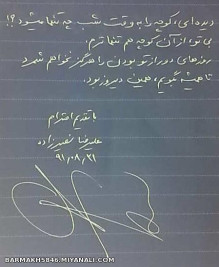 دیده ای، کوچه را به وقت شب چه تنها میشود ؟!
بی تو، از آن کوچه هم تنها ترم.
روزهای دور از تو بودن را هرگز نخواهم شمرد
تا همیشه بگویم، همین دیروز بود.
با تقدیم احترام
علیرضا نصیرزاده
۹۱/۰۸/۲۱
BARMAKH5846.MIYANALI.COM